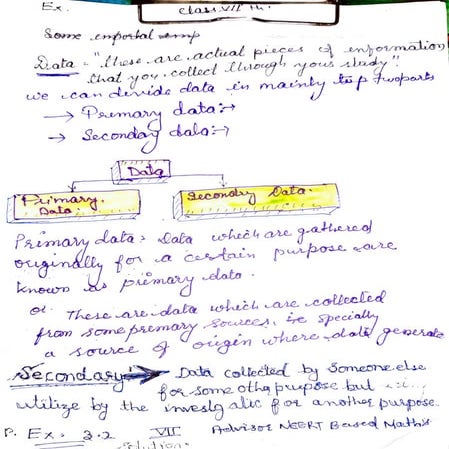 Ex. Class VII th.
Some
Data - "these are actual pieces of information
that you collect through your study".
we can divide data in mainly two parts
→ Primary data:→
→ Seconday data:→
Data
Primary Data.
Secondry Data.
Primary data: Data which are gathered
originally for a certain purpose are
known as primary data.
or These are data which are collected
from some primary sources, i.e specially
a source of origin where data generate
Secondary → Data collected by Someone else
for some othe purpose but
utilize by the for another purpose.
P. Ex. 3.2 VII Advisor NCERT Based Maths
Solution: